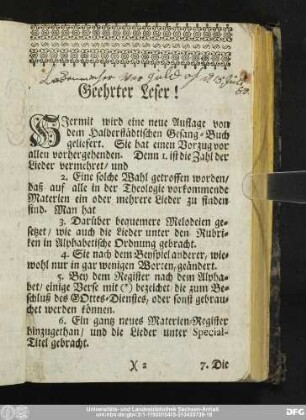 Geehrter Leser!
HJermit wird eine neue Auflage von
dem Halberstädtischen Gesang-Buch
geliefert. Sie hat einen Vorzug vor
allen vorhergehenden. Denn 1. ist die Zahl der
Lieder vermehret/ und
2. Eine solche Wahl getroffen worden/
daß auf alle in der Theologie vorkommende
Materien ein oder mehrere Lieder zu finden
sind. Man hat
3. Darüber bequemere Melodeien ge-
setzet/ wie auch die Lieder unter den Rubri-
ken in Alphabetische Ordnung gebracht.
4. Sie nach dem Beyspiel anderer, wie-
wohl nur in gar wenigen Worten, geändert.
5. Bey dem Register nach dem Alpha-
bet/ einige Verse mit (*) bezeichet die zum Be-
schluß des GOttes-Dienstes, oder sonst gebrau-
chet werden können.
6. Ein gantz neues Materien-Register
hinzugethan/ und die Lieder unter Special-
Titel gebracht.
X 2 7. Die
Universitäts- und Landesbibliothek Sachsen-Anhalt
DFG